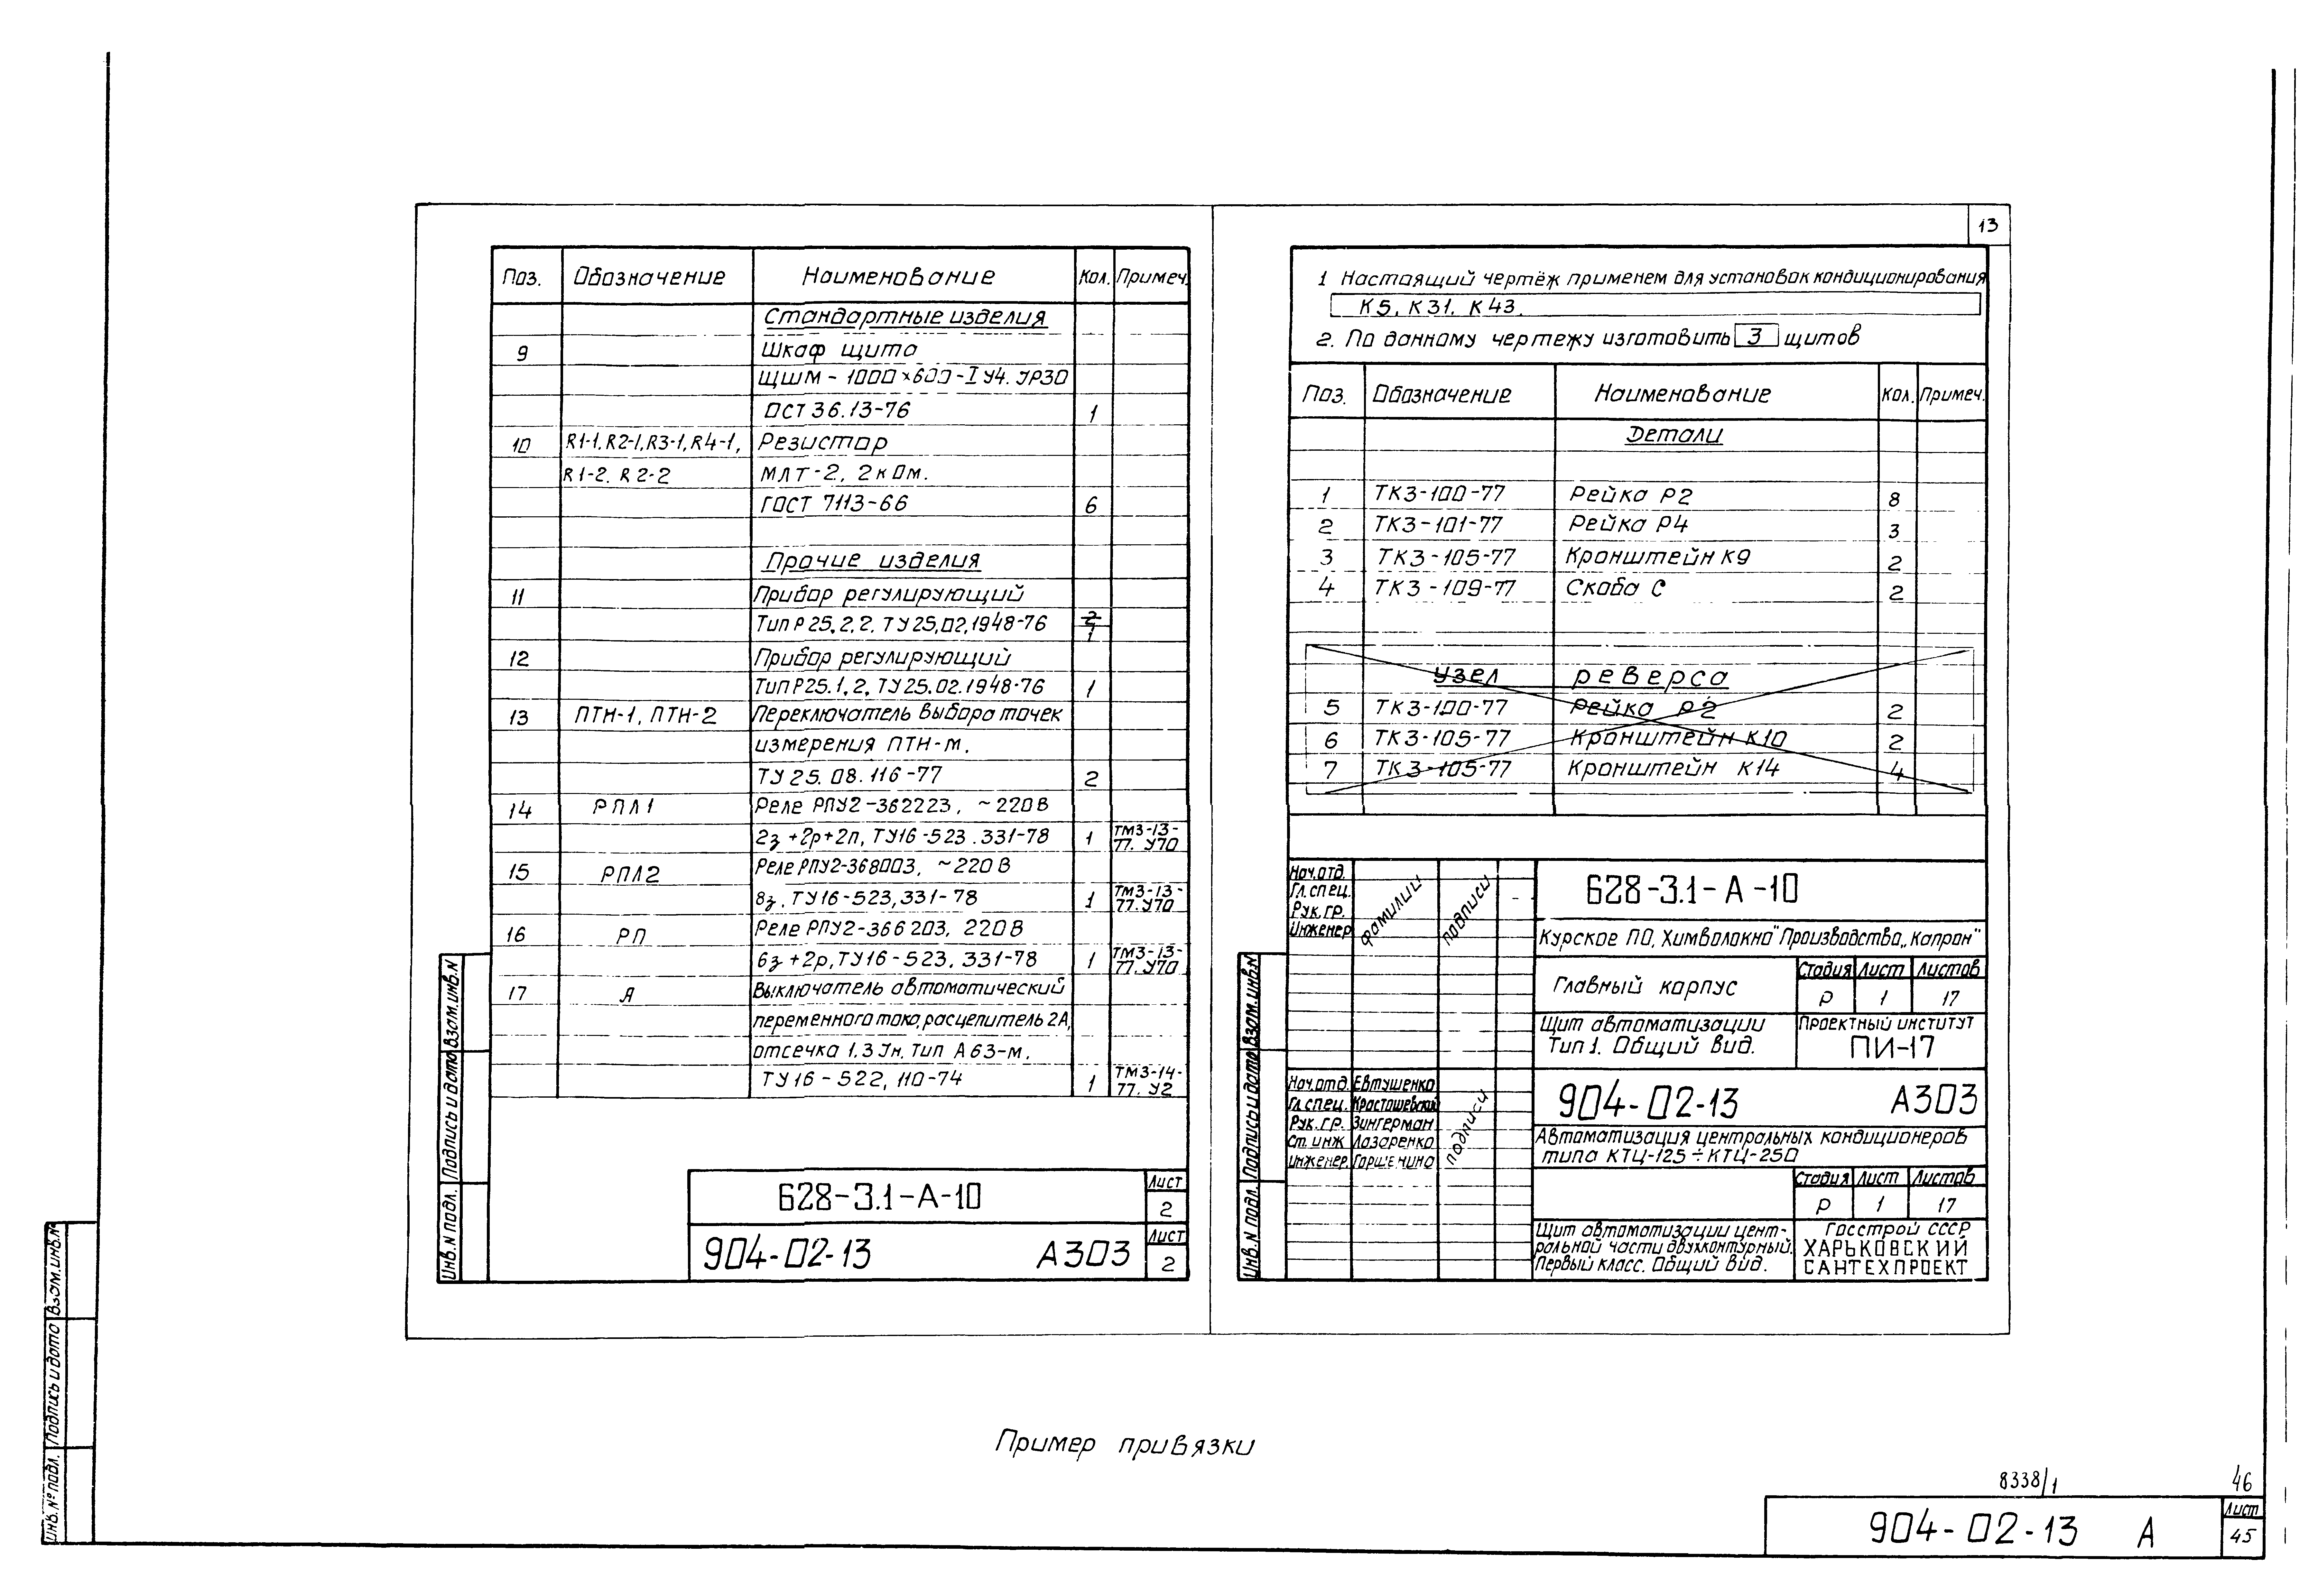 Поз. Обозначение Наименование Кол. Примеч.
Стандартные изделия
9 Шкаф щита
ЩШМ-1000×600-I У4. УР30
ОСТ 36.13-76 1
10 R1-1, R2-1, R3-1, R4-1, Резистор
R1-2. R2-2 МЛТ-2, 2 кОм.
ГОСТ 7113-66 6
Прочие изделия
11 Прибор регулирующий
Тип Р 25.2.2. ТУ 25.02.1948-76 2 1
12 Прибор регулирующий
Тип Р25.1.2, ТУ 25.02.1948-76 1
13 ПТН-1, ПТН-2 Переключатель выбора точек
измерения ПТН-м.
ТУ 25.08.116-77 2
14 РПЛ1 Реле РПУ2-362223, ~220В
2з+2р+2п, ТУ16-523.331-78 1 ТМ3-13-
77. У70
15 РПЛ2 Реле РПУ2-368003, ~220В
8з, ТУ16-523,331-78 1 ТМ3-13-
77. У70
16 РП Реле РПУ2-366203, 220В
6з+2р, ТУ16-523. 331-78 1 ТМ3-13-
77. У70
17 Я Выключатель автоматический
переменного тока, расцепитель 2А,
отсечка 1.3 Ун. Тип А63-м.
ТУ16-522, 110-74 1 ТМ3-14-
77. У2
628-3.1-А-10 Лист
2
904-02-13 А303 Лист
2
Инв.N подл. Подпись и дата Взам.инв.N
13
1 Настоящий чертёж применем для установок кондиционирования
К5, К31. К43.
2. По данному чертежу изготовить 3 щитов
Поз. Обозначение Наименование Кол. Примеч.
Детали
1 ТК3-100-77 Рейка Р2 8
2 ТК3-101-77 Рейка Р4 3
3 ТК3-105-77 Кронштейн К9 2
4 ТК3-109-77 Скоба С 2
Узел реверса
5 ТК3-100-77 Рейка Р2 2
6 ТК3-105-77 Кронштейн К10 2
7 ТК3-105-77 Кронштейн К14 4
Нач.отд.
Гл.спец.
Рук.гр.
Инженер
фамилии подписи
628-3.1-А-10
Курское ПО, Химволокно" Производства „Капрон"
Главный корпус
Стадия Лист Листов
Р 1 17
Щит автоматизации
Тип 1. Общий вид.
Проектный институт
ПИ-17
Нач.отд. Евтушенко
Гл.спец. Красташевский
Рук.гр. Зингерман
Ст.инж Лазаренко
Инженер. Горшенина
подписи
904-02-13 А303
Автоматизация центральных кондиционеров
типа КТЦ-125÷КТЦ-250
Стадия Лист Листов
Р 1 17
Щит автоматизации цент-
ральной части двухконтурный.
Первый класс. Общий вид.
Госстрой СССР
ХАРЬКОВСКИЙ
САНТЕХПРОЕКТ
Инв.N подл. Подпись и дата Взам.инв.N
Пример привязки
8338/1
46
904-02-13 А
Лист
45
Инв.№ подл. Подпись и дата Взам.инв.№